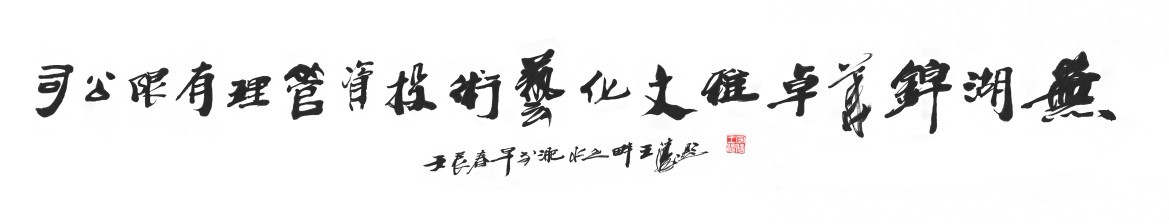 蕪湖錦華卓雅文化藝術投資管理有限公司
壬辰春早於淝水之畔王